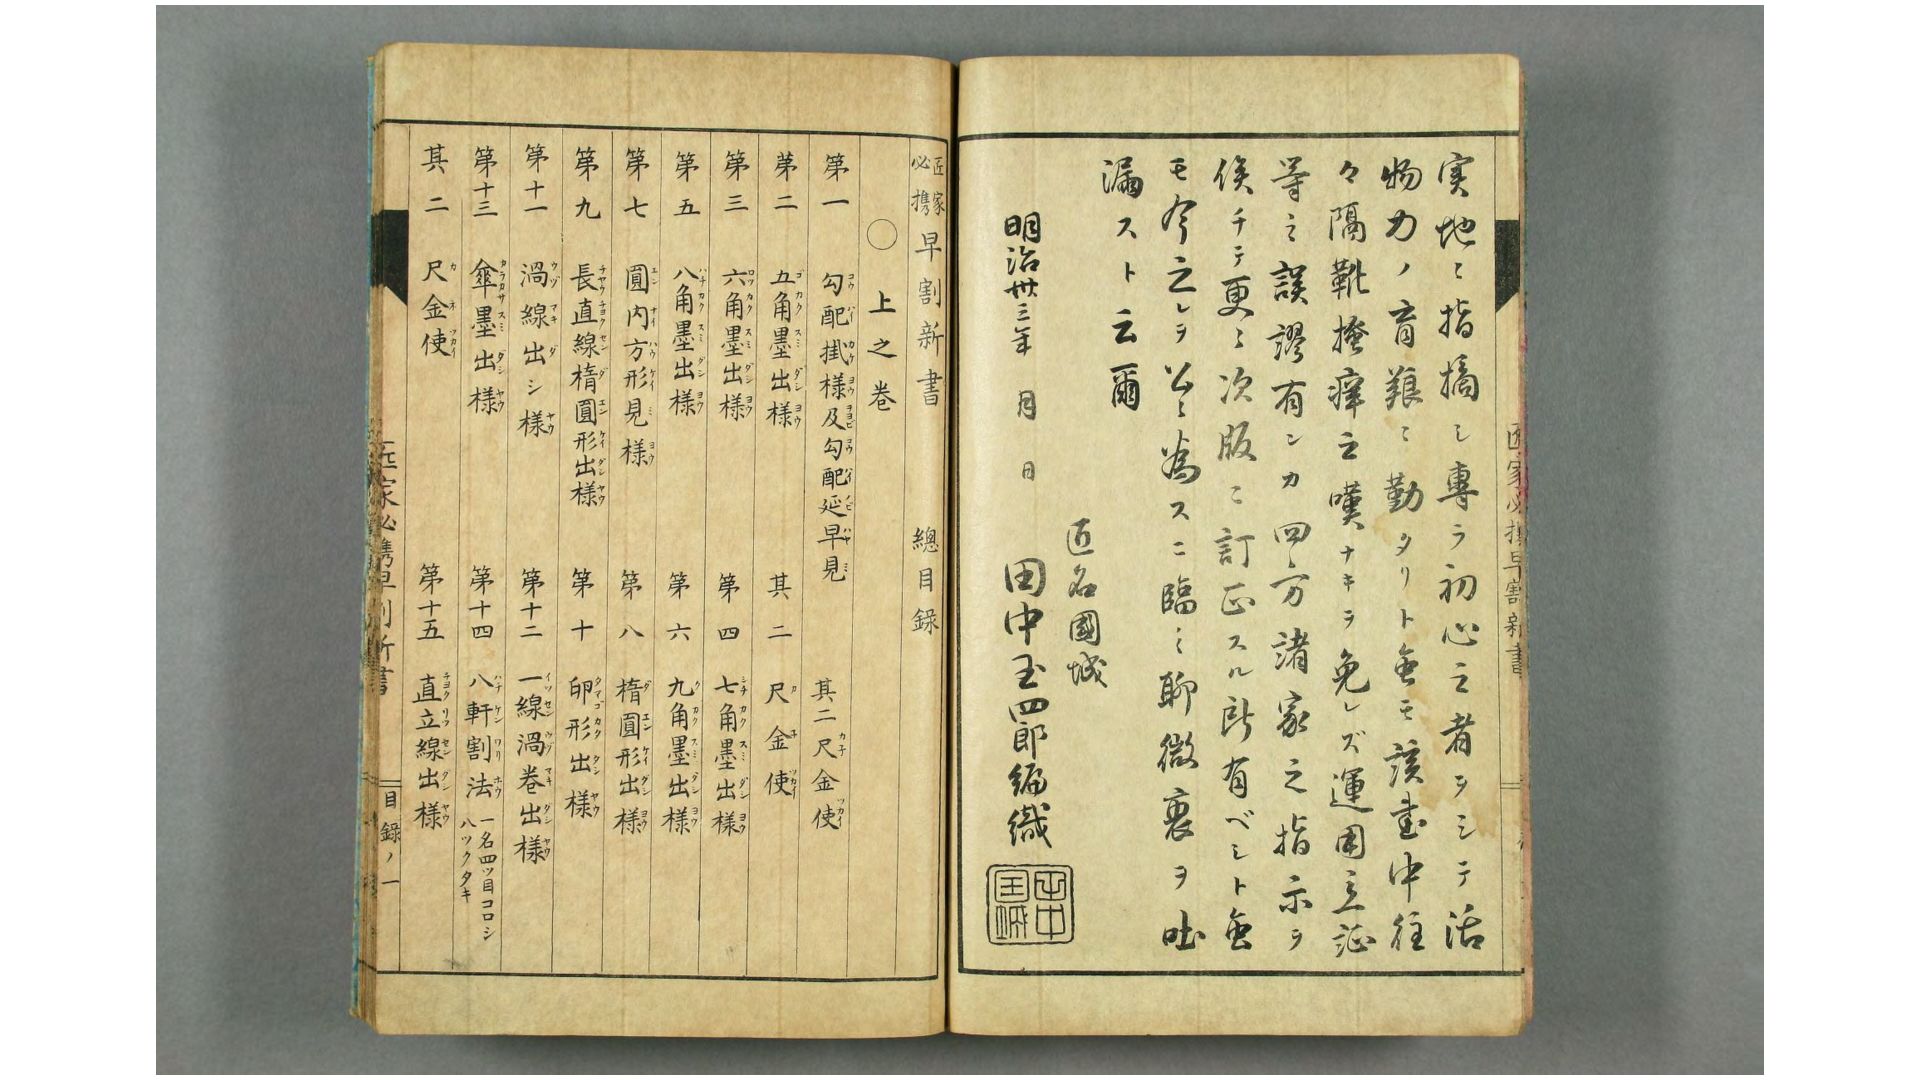 実地ニ指摘シ専ラ初心之者ヲシテ活
物力ノ育粮ニ勤タリト雖モ該書中往
々隔靴掻痒之嘆ナキヲ免レズ運用立証
等ニ誤謬有ンカ四方諸家之指示ヲ
俟チテ更ニ次版ニ訂正スル所有ベシト雖
モ今之レヲ公ニ為スニ臨ミ聊微衷ヲ吐
漏スト云爾
匠名國城
明治卅三年 月 日 田中玉四郎編織
匠家必携早割新書
匠家必携早割新書 總目録
○上之巻
第一 勾配掛様及勾配延早見 其二尺金使
第二 五角墨出様 其二 尺金使
第三 六角墨出様 第四 七角墨出様
第五 八角墨出様 第六 九角墨出様
第七 圓内方形見様 第八 楕圓形出様
第九 長直線楕圓形出様 第十 卵形出様
第十一 渦線出シ様 第十二 一線渦巻出様
第十三 傘墨出様 第十四 八軒割法 一名四ッ目コロシ 八ツクタキ
其二 尺金使 第十五 直立線出様
匠家必携早割新書 目録ノ一